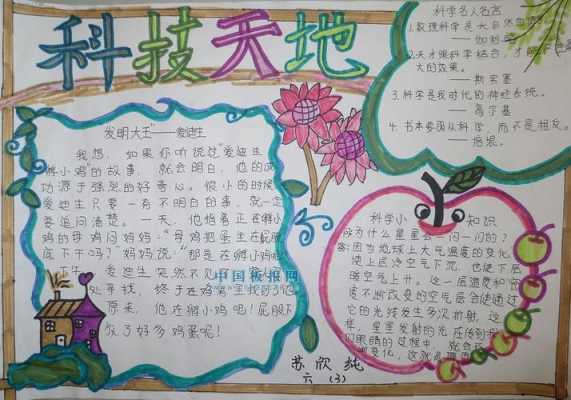 科技天地
发明大王"——爱迪生
我想，如果你听说过"爱迪生
孵小鸡"的故事，就会明白，他的成
功源于强烈的好奇心。很小的时候
爱迪生只要一有不明白的事，就一定
要追问清楚。一天，他指着正在孵小
鸡的母鸡问妈妈："母鸡把蛋坐在屁股
底下干吗？"妈妈说："那是在孵小鸡呢
爱迪生突然不见
处寻找，终于在鸡窝里找到了他
原来，他在孵小鸡呢！屁股下
放了好多鸡蛋呢！
中国板报网
科学名人名言
1.数理科学是大自
——伽利略
2.天才跟科学结合，才能
大的效果。
——斯宾塞
3.科学是我时代的神经系统。
——高尔基
4.书本要服从科学，而不是相反。
——培根。
科学小知识
为什么星星会一闪一闪的？
答：因为地球上大气温度的变化，
使上层冷空气下沉，也使下层
暖空气上升。这一层温度和密
度不断改变的空气层会使通过
它的光线发生多次折射，这
样，星星发射的光在传到
们眼睛的过程中，就会
变化，这就
苏欣纯
六（3）